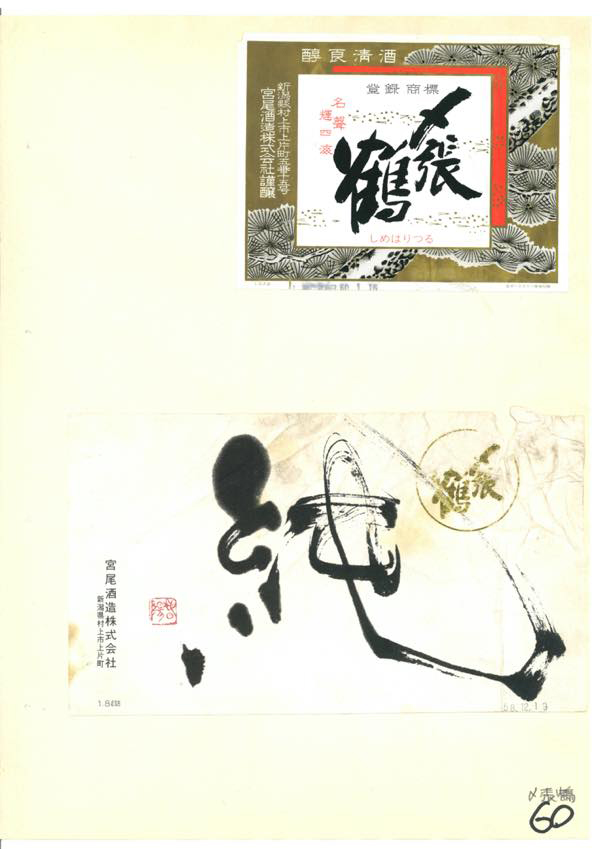 醇良清酒
登録商標
名聲
輝四海
〆張
鶴
しめはりつる
新潟縣村上市上片町五番十五号
宮尾酒造株式会社謹釀
60.1.16
〆張
鶴
純
宮尾酒造株式会社
新潟県村上市上片町
1.8ℓ詰
58.12.19
〆張鶴
60